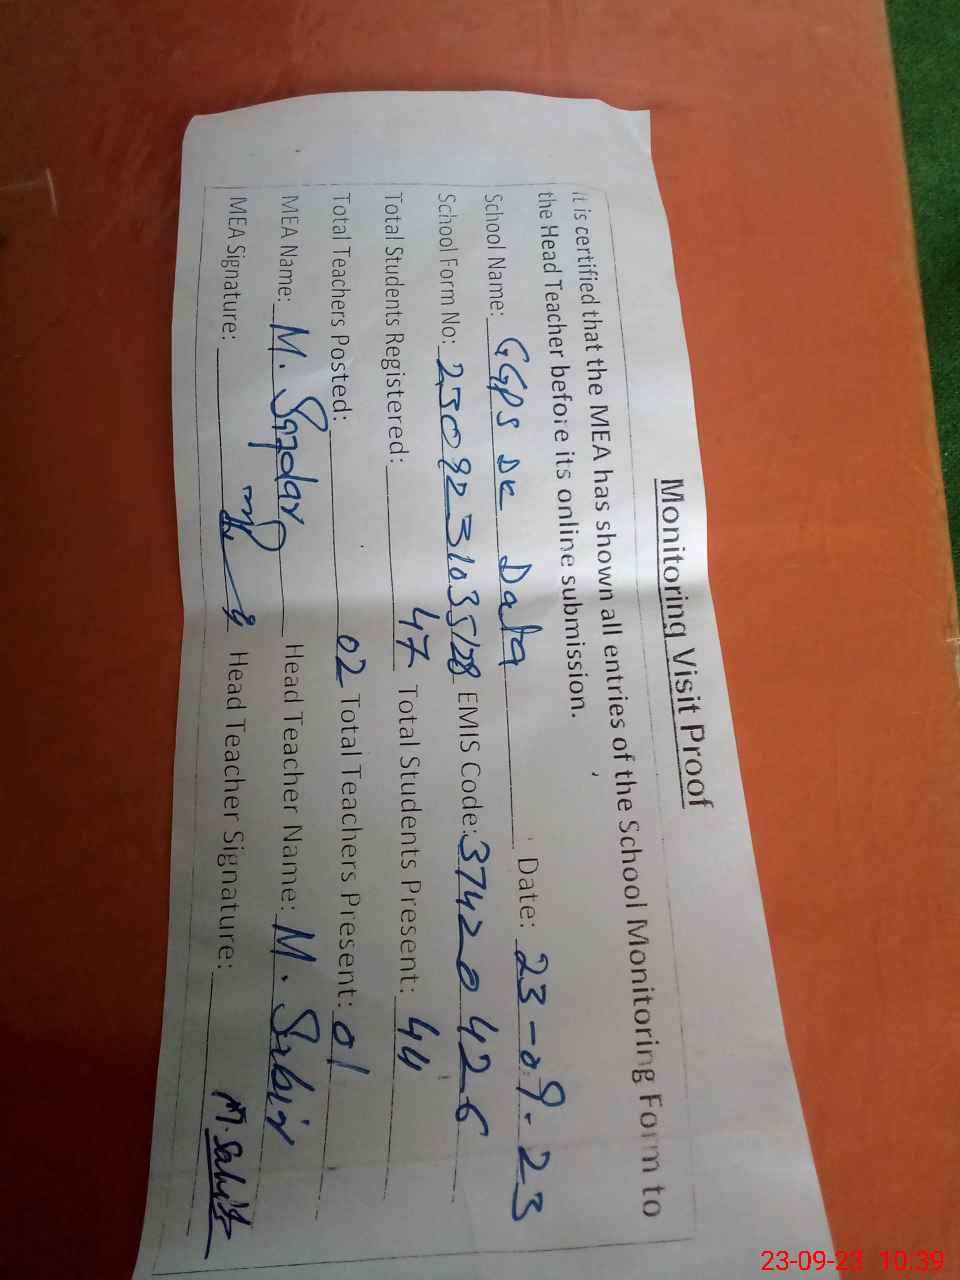 Monitoring Visit Proof
It is certified that the MEA has shown all entries of the School Monitoring Form to
the Head Teacher before its online submission.
School Name: GGPS De Data Date: 23-09-23
School Form No: EMIS Code: 37420426
Total Students Registered: 47 Total Students Present: 44
Total Teachers Posted: 02 Total Teachers Present: 01
MEA Name: M. Safdar Head Teacher Name: M. Sabir
MEA Signature: Head Teacher Signature: M. Sabir
23-09-23 10:39